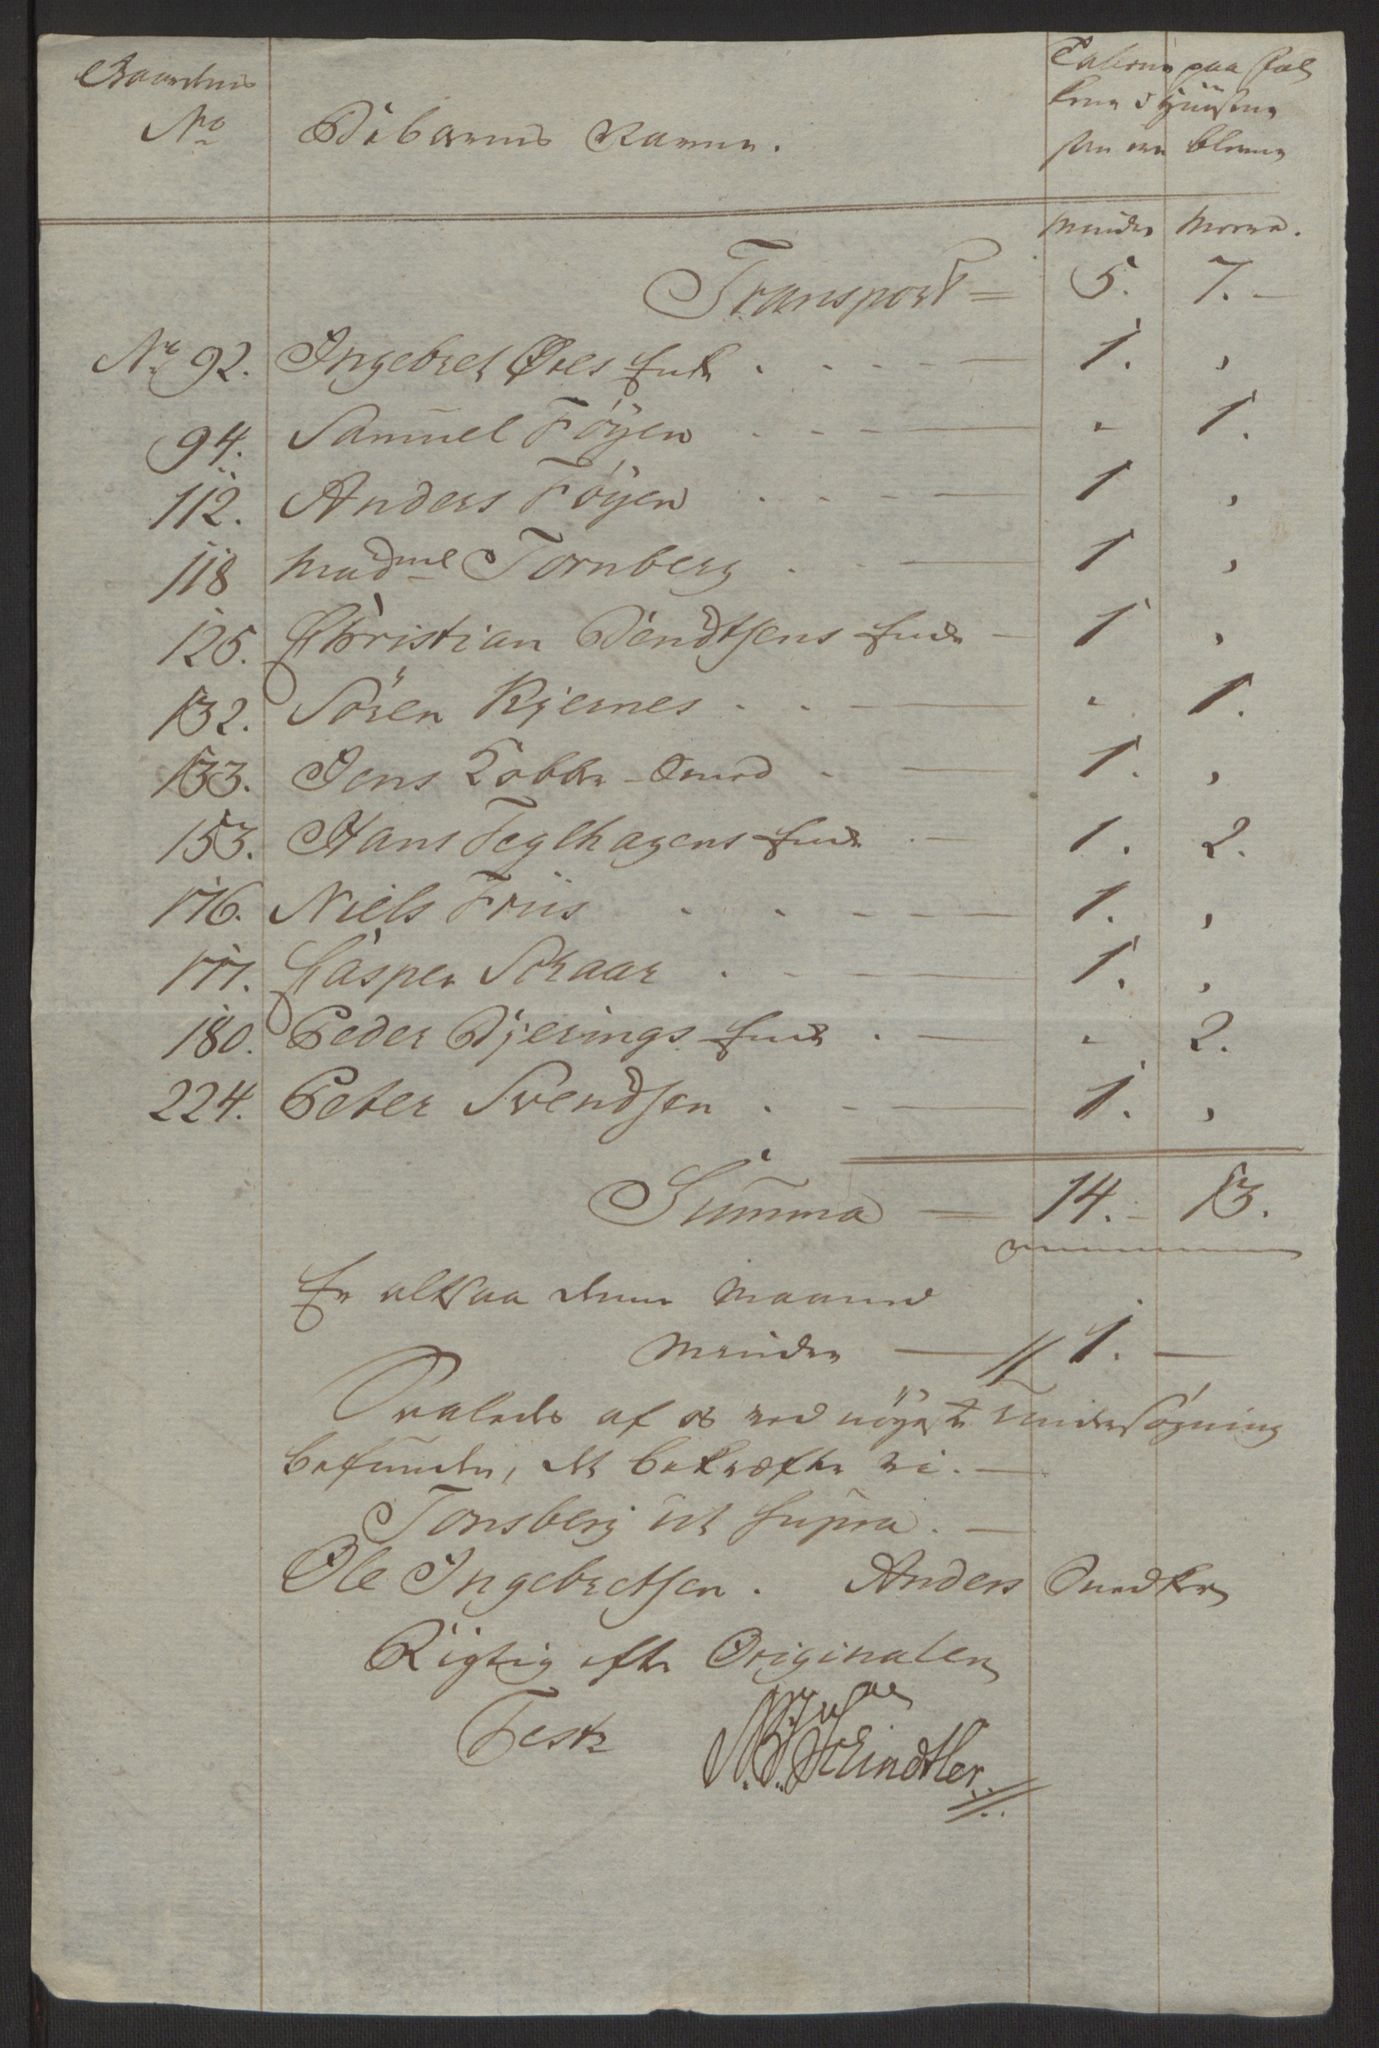 Gaardens Tallene paa Fol
No Beboernes Navne. kene i Huusene
som ere blevne
mindre Meere.
Transport = 5. 7. -
No 92. Ingebret Øres Enke 1. ,
94. Samuel Föyen - 1.
112. Anders Föyen 1 ,
118 Madme Tornberg 1 ,
125. Christian Bendtsens Enke 1 ,
132. Sören Kjernes - 1.
133. Jens Kobber-Smed 1. ,
153. Hans Teglhagens Enke 1. 2.
176. Niels Friis 1. ,
177. Casper Skaar 1. ,
180. Peder Bjerings Enke - 2.
224. Peter Svendsen 1. ,
Summa = 14. - 13.
Er altsaa denne Maaned
Mindre — 1. —
Saaledes af os ved nöyeste Undersögning
befunden, det bekræfter vi. —
Tonsberg ut supra. —
Ole Ingebretsen. Anders Snedker
Rigtig efter Originalen
Test